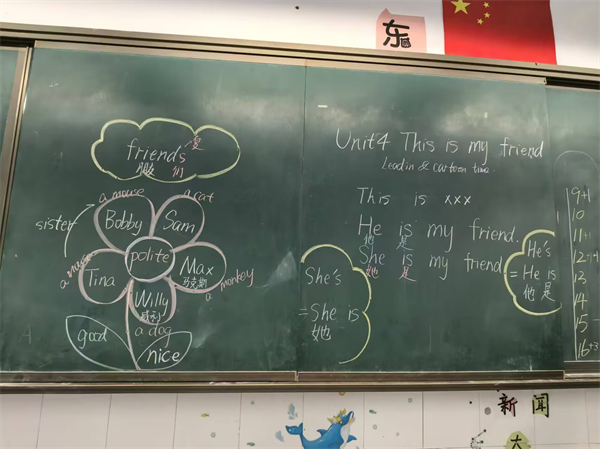 东
friends
朋 们
a mouse
a cat
sister
Bobby
Sam
polite
a mouse
Tina
Max
马克斯
a monkey
Willy
威利
a dog
good
nice
Unit4 This is my friend
Leadin & cartoon time
This is xxx
He is my friend.
他 是
She is my friend
她 是
She's
=She is
她
He's
=He is
他 是
9+1
10
11+1
12+1+1
13
14
15
16+3
新 闻
大